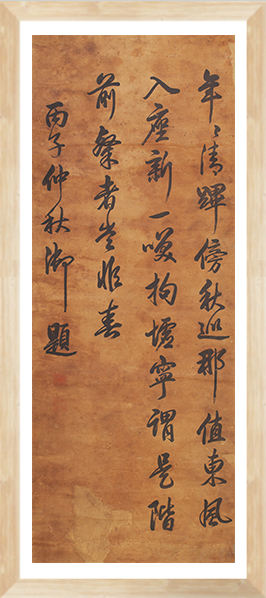 年〻清蹕傍秋巡那值東風
入座新一咲拘墟寧謂是階
前粲者豈非春
丙子仲秋御題